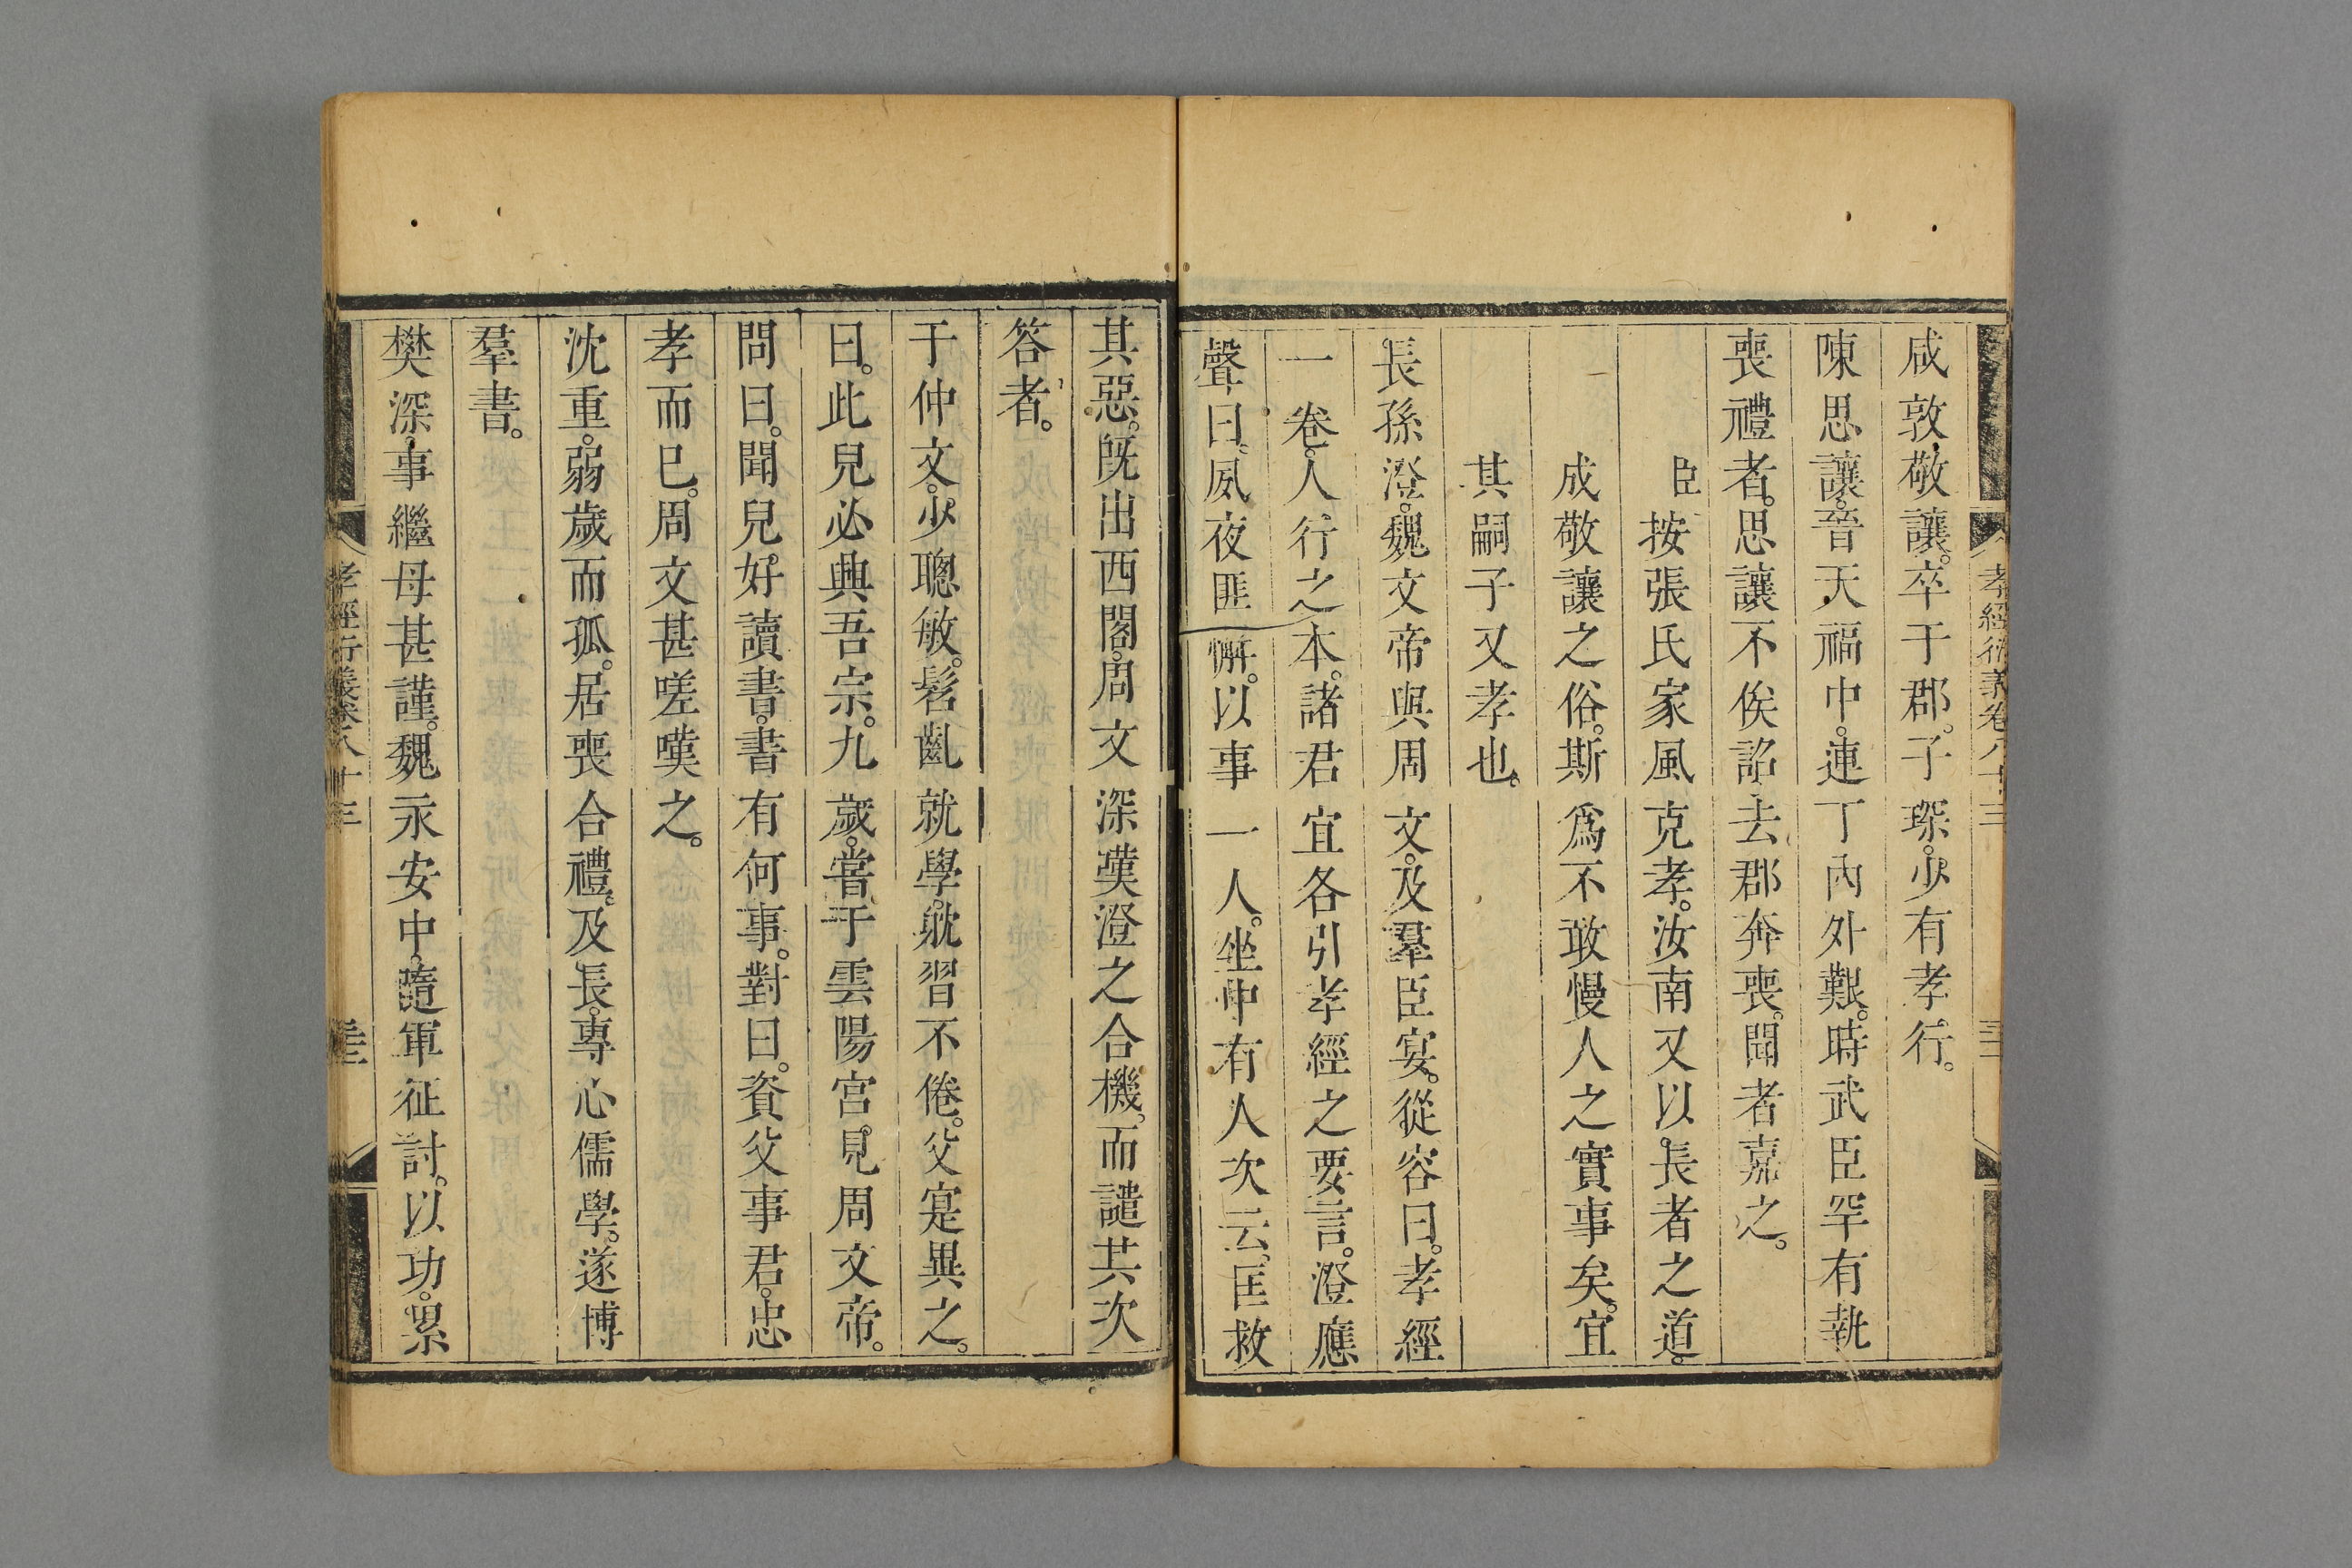 孝經衍義卷八十三
咸敦敬讓。卒于郡。子琛。少有孝行。
陳思讓。晉天福中。連丁內外艱。時武臣罕有執
喪禮者。思讓不俟詔去郡奔喪。聞者嘉之。
臣按張氏家風克孝。汝南又以長者之道。
成敬讓之俗。斯爲不敢慢人之實事矣。宜
其嗣子又孝也。
長孫澄。魏文帝與周文。及羣臣宴。從容曰。孝經
一卷。人行之本。諸君宜各引孝經之要言。澄應
聲曰。夙夜匪懈。以事一人。坐中有人次云。匡救
其惡。旣出西閣。周文深嘆澄之合機。而譴其次
答者。
于仲文。少聰敏。髫齔就學。躭習不倦。父寔異之。
曰。此兒必興吾宗。九歲。嘗于雲陽宮。見周文帝。
問曰。聞兒好讀書。書有何事。對曰。資父事君。忠
孝而已。周文甚嗟嘆之。
沈重。弱歲而孤。居喪合禮。及長。專心儒學。遂博
羣書。
樊深。事繼母甚謹。魏永安中。隨軍征討。以功。累
孝經衍義卷八十三